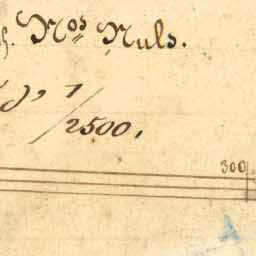 h. Nos Nuls.
1/2500.
300